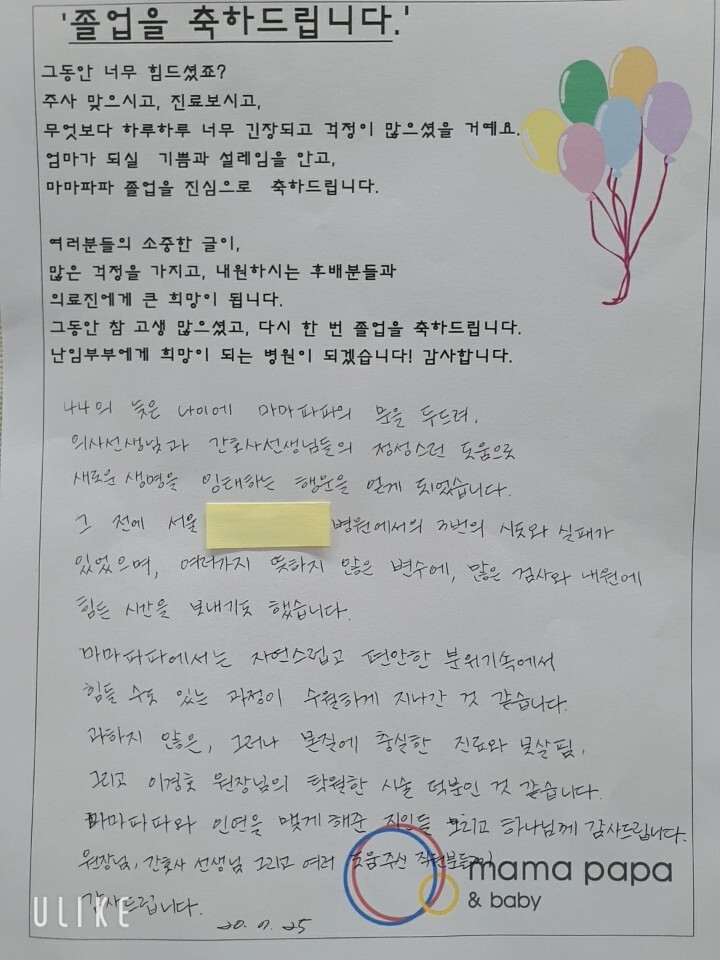 '졸업을 축하드립니다.'
그동안 너무 힘드셨죠?
주사 맞으시고, 진료보시고,
무엇보다 하루하루 너무 긴장되고 걱정이 많으셨을 거예요.
엄마가 되실 기쁨과 설레임을 안고,
마마파파 졸업을 진심으로 축하드립니다.
여러분들의 소중한 글이,
많은 걱정을 가지고, 내원하시는 후배분들과
의료진에게 큰 희망이 됩니다.
그동안 참 고생 많으셨고, 다시 한 번 졸업을 축하드립니다.
난임부부에게 희망이 되는 병원이 되겠습니다! 감사합니다.
44의 늦은 나이에 마마파파의 문을 두드려,
의사선생님과 간호사선생님들의 정성스런 도움으로
새로운 생명을 잉태하는 행운을 얻게 되었습니다.
그 전에 서울 병원에서의 3번의 시도와 실패가
있었으며, 여러가지 뜻하지 않은 변수에, 많은 검사와 내원에
힘든 시간을 보내기도 했습니다.
마마파파에서는 자연스럽고 편안한 분위기속에서
힘들 수도 있는 과정이 수월하게 지나간 것 같습니다.
과하지 않은, 그러나 본질에 충실한 진료와 보살핌,
그리고 원장님의 탁월한 시술 덕분인 것 같습니다.
마마파파와 인연을 맺게 해준 지인들 그리고 하나님께 감사드립니다.
원장님, 간호사 선생님 그리고 여러 도움주신 직원분들께
mama papa
& baby
감사드립니다.
ULIKE
20. 9. 25